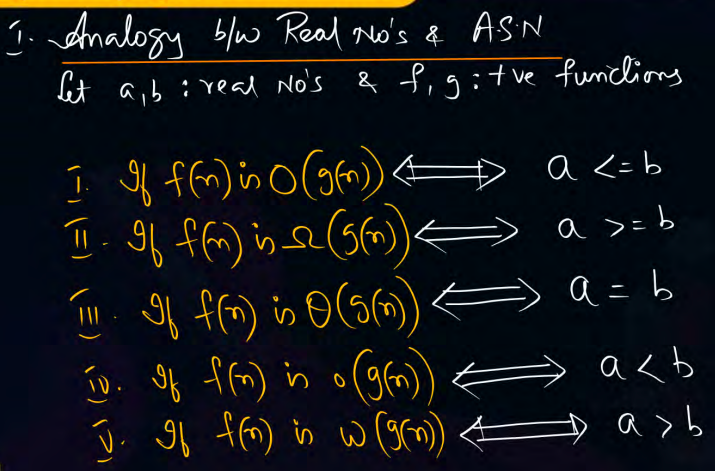 1. Analogy b/w Real No's & A.S.N
Let a,b : real No's & f, g : +ve functions
I. If f(n) is O(g(n)) ⟺ a <= b
II. If f(n) is Ω(g(n)) ⟺ a >= b
III. If f(n) is Θ(g(n)) ⟺ a = b
iv. If f(n) is o(g(n)) ⟺ a < b
v. If f(n) is ω(g(n)) ⟺ a > b